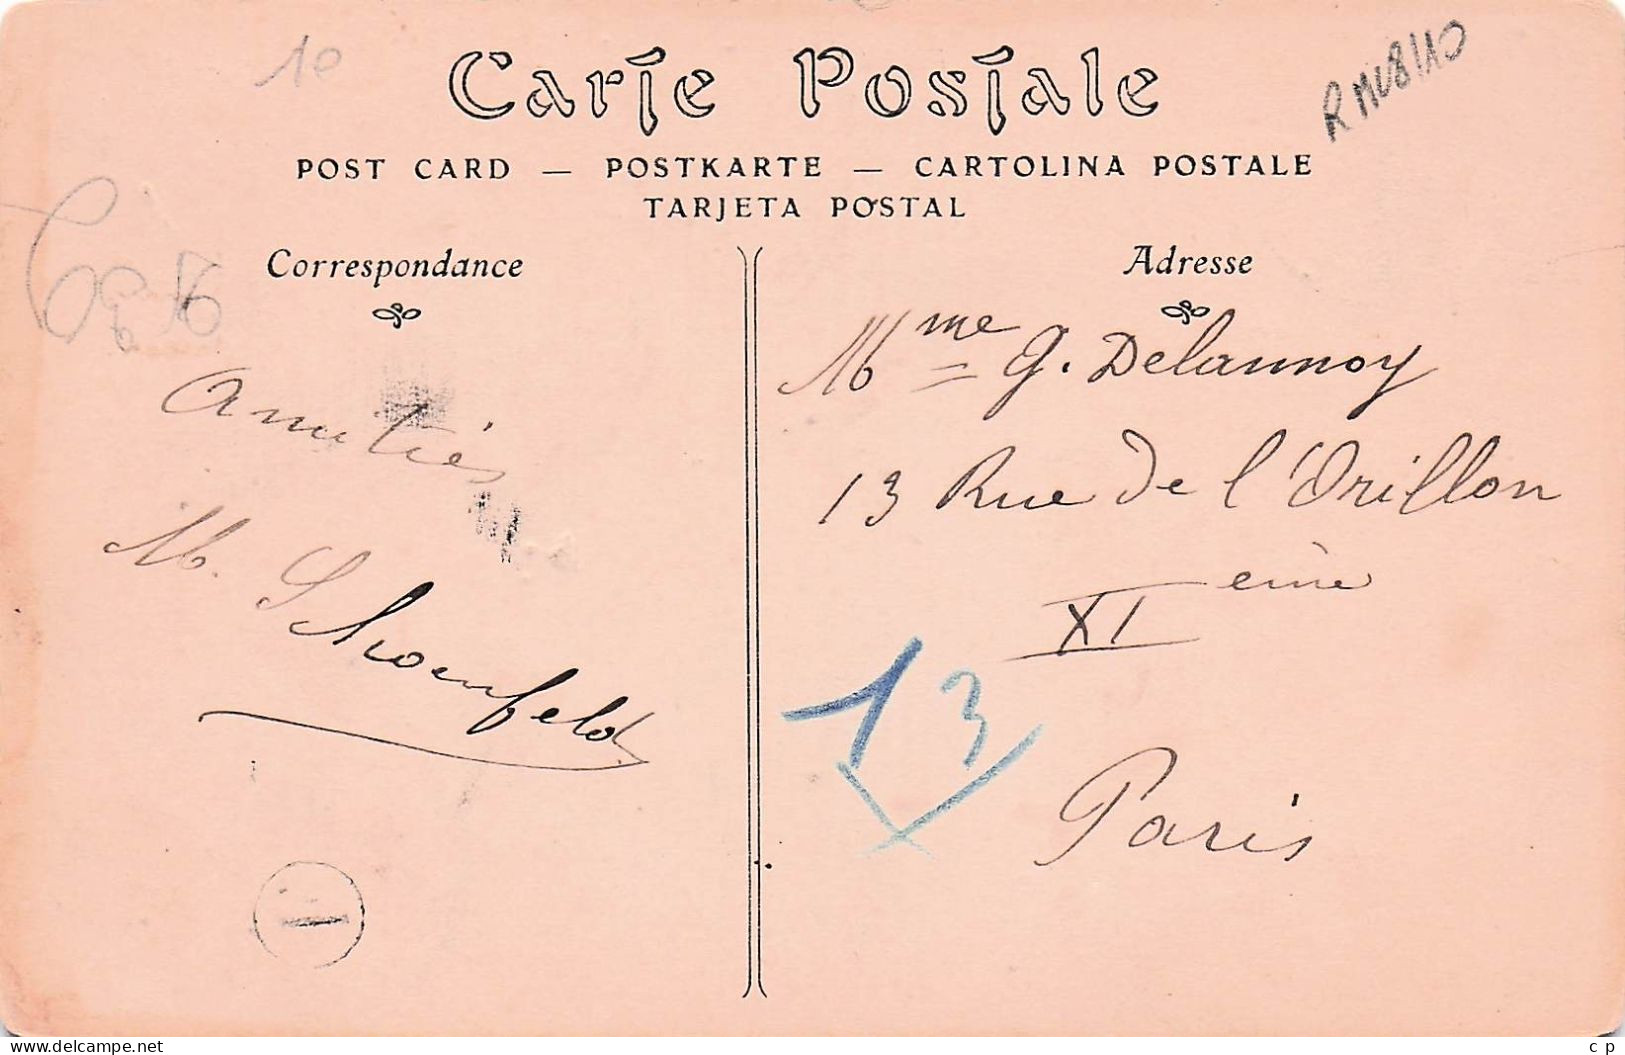 10
Carte Postale
POST CARD — POSTKARTE — CARTOLINA POSTALE
TARJETA POSTAL
Correspondance
Amitiés
M. Schoenfeld
Adresse
Mme G. Delannoy
13 Rue de l'Orillon
XI eme
Paris
13
delcampe.net
c p